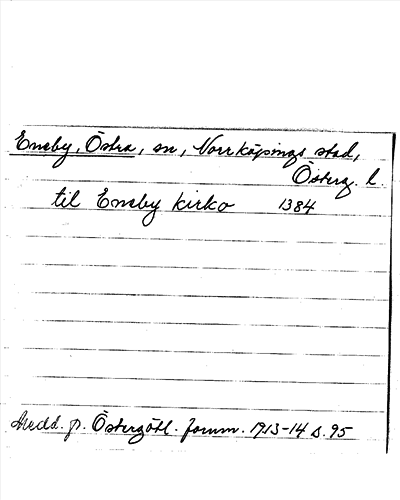 Eneby, Östra, sn, Norrköpings stad,
Österg. l.
til Eneby kirko 1384
Medd. fr. Östergötl. fornm. 1913-14 s. 95